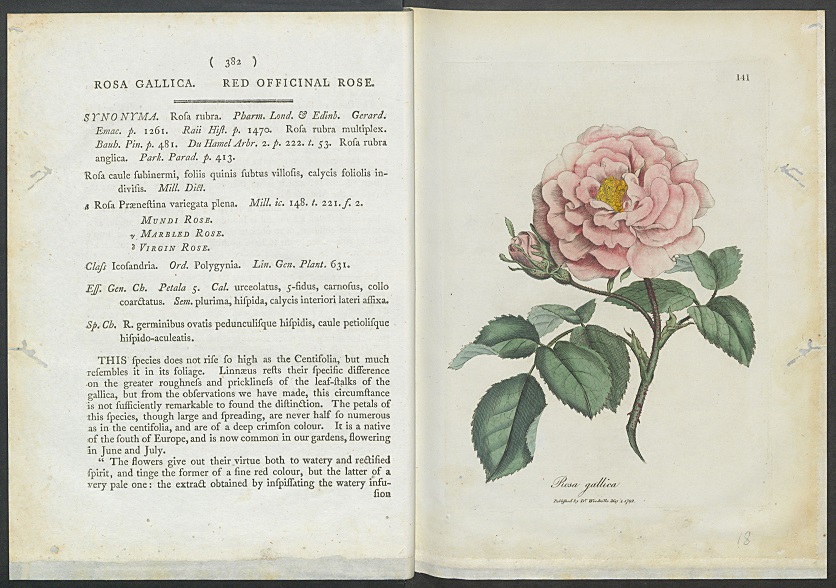 ( 382 )
ROSA GALLICA. RED OFFICINAL ROSE.
SYNONYMA. Roſa rubra. Pharm. Lond. & Edinb. Gerard.
Emac. p. 1261. Raii Hiſt. p. 1470. Roſa rubra multiplex.
Bauh. Pin. p. 481. Du Hamel Arbr. 2. p. 222. t. 53. Roſa rubra
anglica. Park. Parad. p. 413.
Roſa caule ſubinermi, foliis quinis ſubtus villoſis, calycis foliolis in-
diviſis. Mill. Dict.
Roſa Præneſtina variegata plena. Mill. ic. 148. t. 221. f. 2.
MUNDI ROSE.
γ MARBLED ROSE.
δ VIRGIN ROSE.
Claſs Icoſandria. Ord. Polygynia. Lin. Gen. Plant. 631.
Eſſ. Gen. Ch. Petala 5. Cal. urceolatus, 5-fidus, carnoſus, collo
coarctatus. Sem. plurima, hiſpida, calycis interiori lateri affixa.
Sp. Ch. R. germinibus ovatis pedunculiſque hiſpidis, caule petioliſque
hiſpido-aculeatis.
THIS ſpecies does not riſe ſo high as the Centifolia, but much
reſembles it in its foliage. Linnæus reſts their ſpecific difference
on the greater roughneſs and pricklineſs of the leaf-ſtalks of the
gallica, but from the obſervations we have made, this circumſtance
is not ſufficiently remarkable to found the diſtinction. The petals of
this ſpecies, though large and ſpreading, are never half ſo numerous
as in the centifolia, and are of a deep crimſon colour. It is a native
of the ſouth of Europe, and is now common in our gardens, flowering
in June and July.
" The flowers give out their virtue both to watery and rectified
ſpirit, and tinge the former of a fine red colour, but the latter of a
very pale one: the extract obtained by inſpiſſating the watery infu-
ſion
141
Rosa gallica
Published by Dr. Woodville May 1. 1792.
18